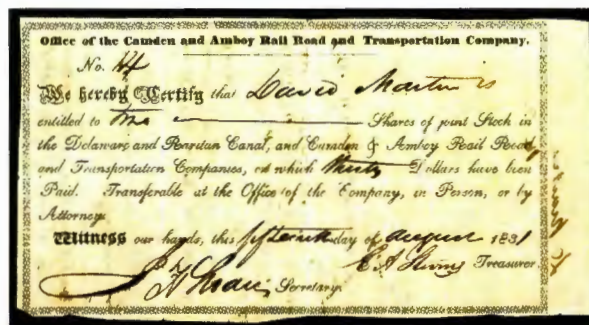 Office of the Camden and Amboy Rail Road and Transportation Company.
No. 14
We hereby Certify that David Martin is
entitled to two Shares of joint Stock in
the Delaware and Raritan Canal, and Camden & Amboy Rail Road
and Transportation Companies, on which thirty Dollars have been
Paid. Transferable at the Office of the Company, in Person, or by
Attorney.
Witness our hands, this fifteenth day of august 1831
E A Stevens Treasurer
Secretary.